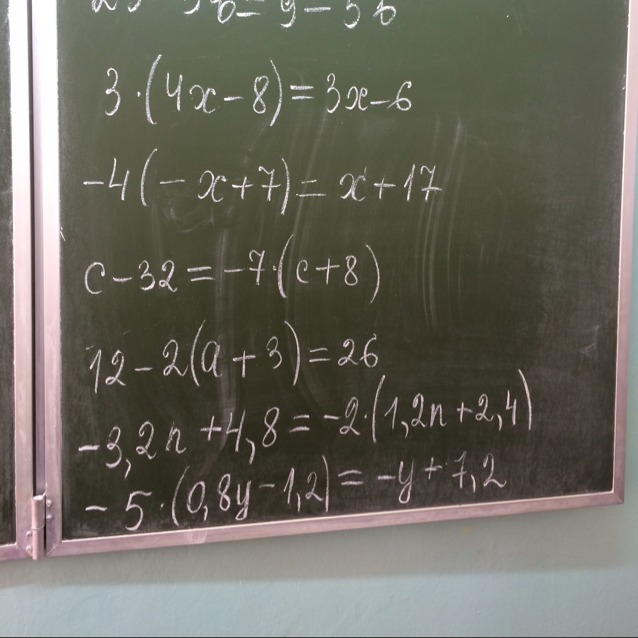 3·(4x-8)=3x-6
-4(-x+7)=x+17
c-32=-7·(c+8)
12-2(a+3)=26
-3,2n+4,8=-2·(1,2n+2,4)
-5·(0,8y-1,2)=-y+7,2